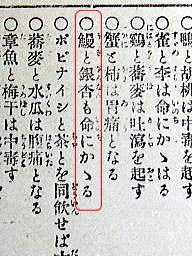 ○雀と李は命にかゝはる
○鷄と蕎麥は吐瀉を起す
○蟹と柿は胃痛となる
○鰻と銀杏も命にかゝる
○ポピナイシと茶とを同飮せば
○蕎麥と水瓜は胸痛となる
○章魚と梅干は中毒す